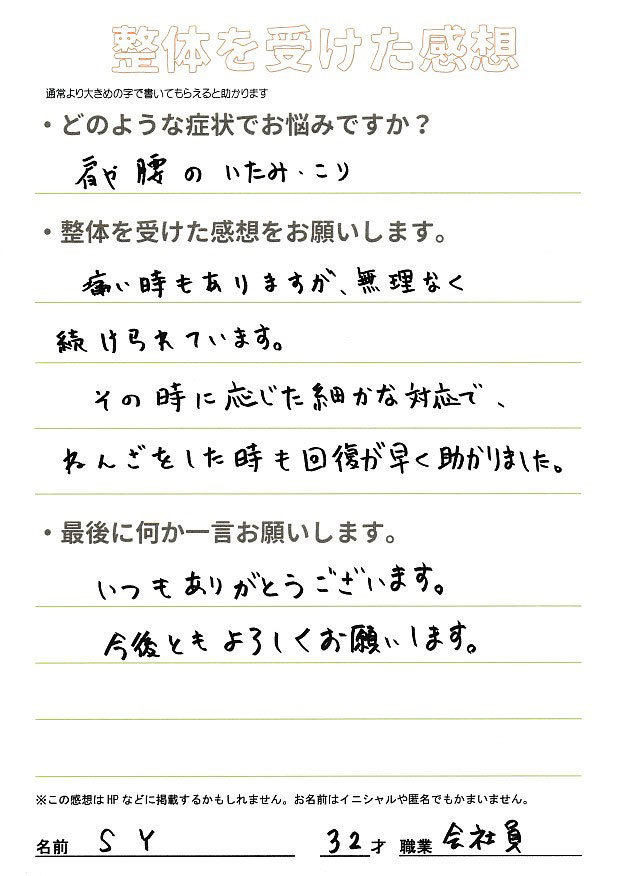 整体を受けた感想
通常より大きめの字で書いてもらえると助かります
・どのような症状でお悩みですか？
肩や腰のいたみ・こり
・整体を受けた感想をお願いします。
痛い時もありますが、無理なく
続けられています。
その時に応じた細かな対応で、
ねんざをした時も回復が早く助かりました。
・最後に何か一言お願いします。
いつもありがとうございます。
今後ともよろしくお願いします。
※この感想はHPなどに掲載するかもしれません。お名前はイニシャルや匿名でもかまいません。
名前 S Y 32才 職業 会社員